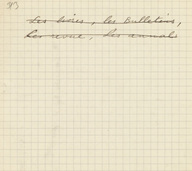 83
Les livres, les bulletins,
Les revues, les annales